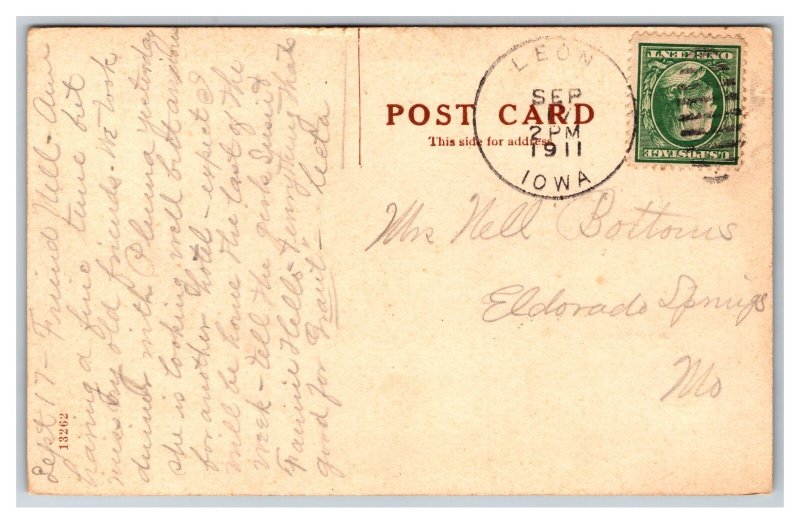 Sept 17 - Friend Nell - Am
having a fine time but
miss my old friends. We took
dinner with Plenna yesterday
she is looking well but anxious
for another hotel - expect I
will be home the last of the
week - tell the girls
Fannie Kells Ferry - Thats
good for "Gault" -
13262
POST CARD
This side for address
LEON
SEP
2 PM
1911
IOWA
ONE CENT
U.S. POSTAGE
Mrs Nell Bottoms
Eldorado Springs
Mo